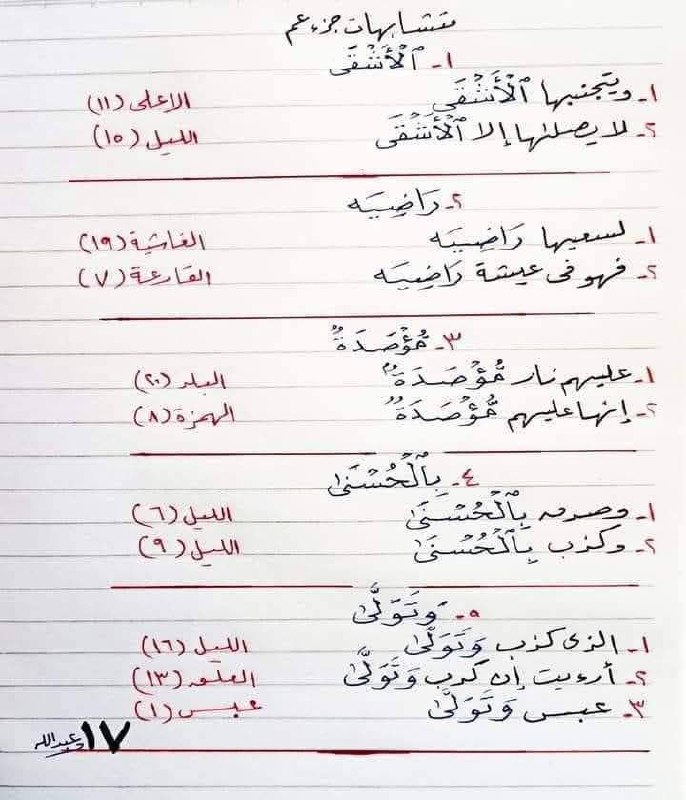 متشابهات جزء عم
١- ٱلْأَشْقَى
١- ويتجنبها ٱلْأَشْقَى الأعلى (١١)
٢- لا يصلىٰها إلا ٱلْأَشْقَى الليل (١٥)
٢- رَاضِيَه
١- لسعيها رَاضِيَه الغاشية (١٩)
٢- فهو فى عيشة رَاضِيَه القارعة (٧)
٣- مُّؤْصَدَةٌ
١- عليهم نار مُّؤْصَدَةٌ البلد (٢٠)
٢- إنها عليهم مُّؤْصَدَةٌ الهمزة (٨)
٤- بِٱلْحُسْنَىٰ
١- وصدق بِٱلْحُسْنَىٰ الليل (٦)
٢- وكذب بِٱلْحُسْنَىٰ الليل (٩)
٥- وَتَوَلَّىٰ
١- الذى كذب وَتَوَلَّىٰ الليل (١٦)
٢- أرءيت إن كذب وَتَوَلَّىٰ العلق (١٣)
٣- عبس وَتَوَلَّىٰ عبس (١)
١٧ عبدالله